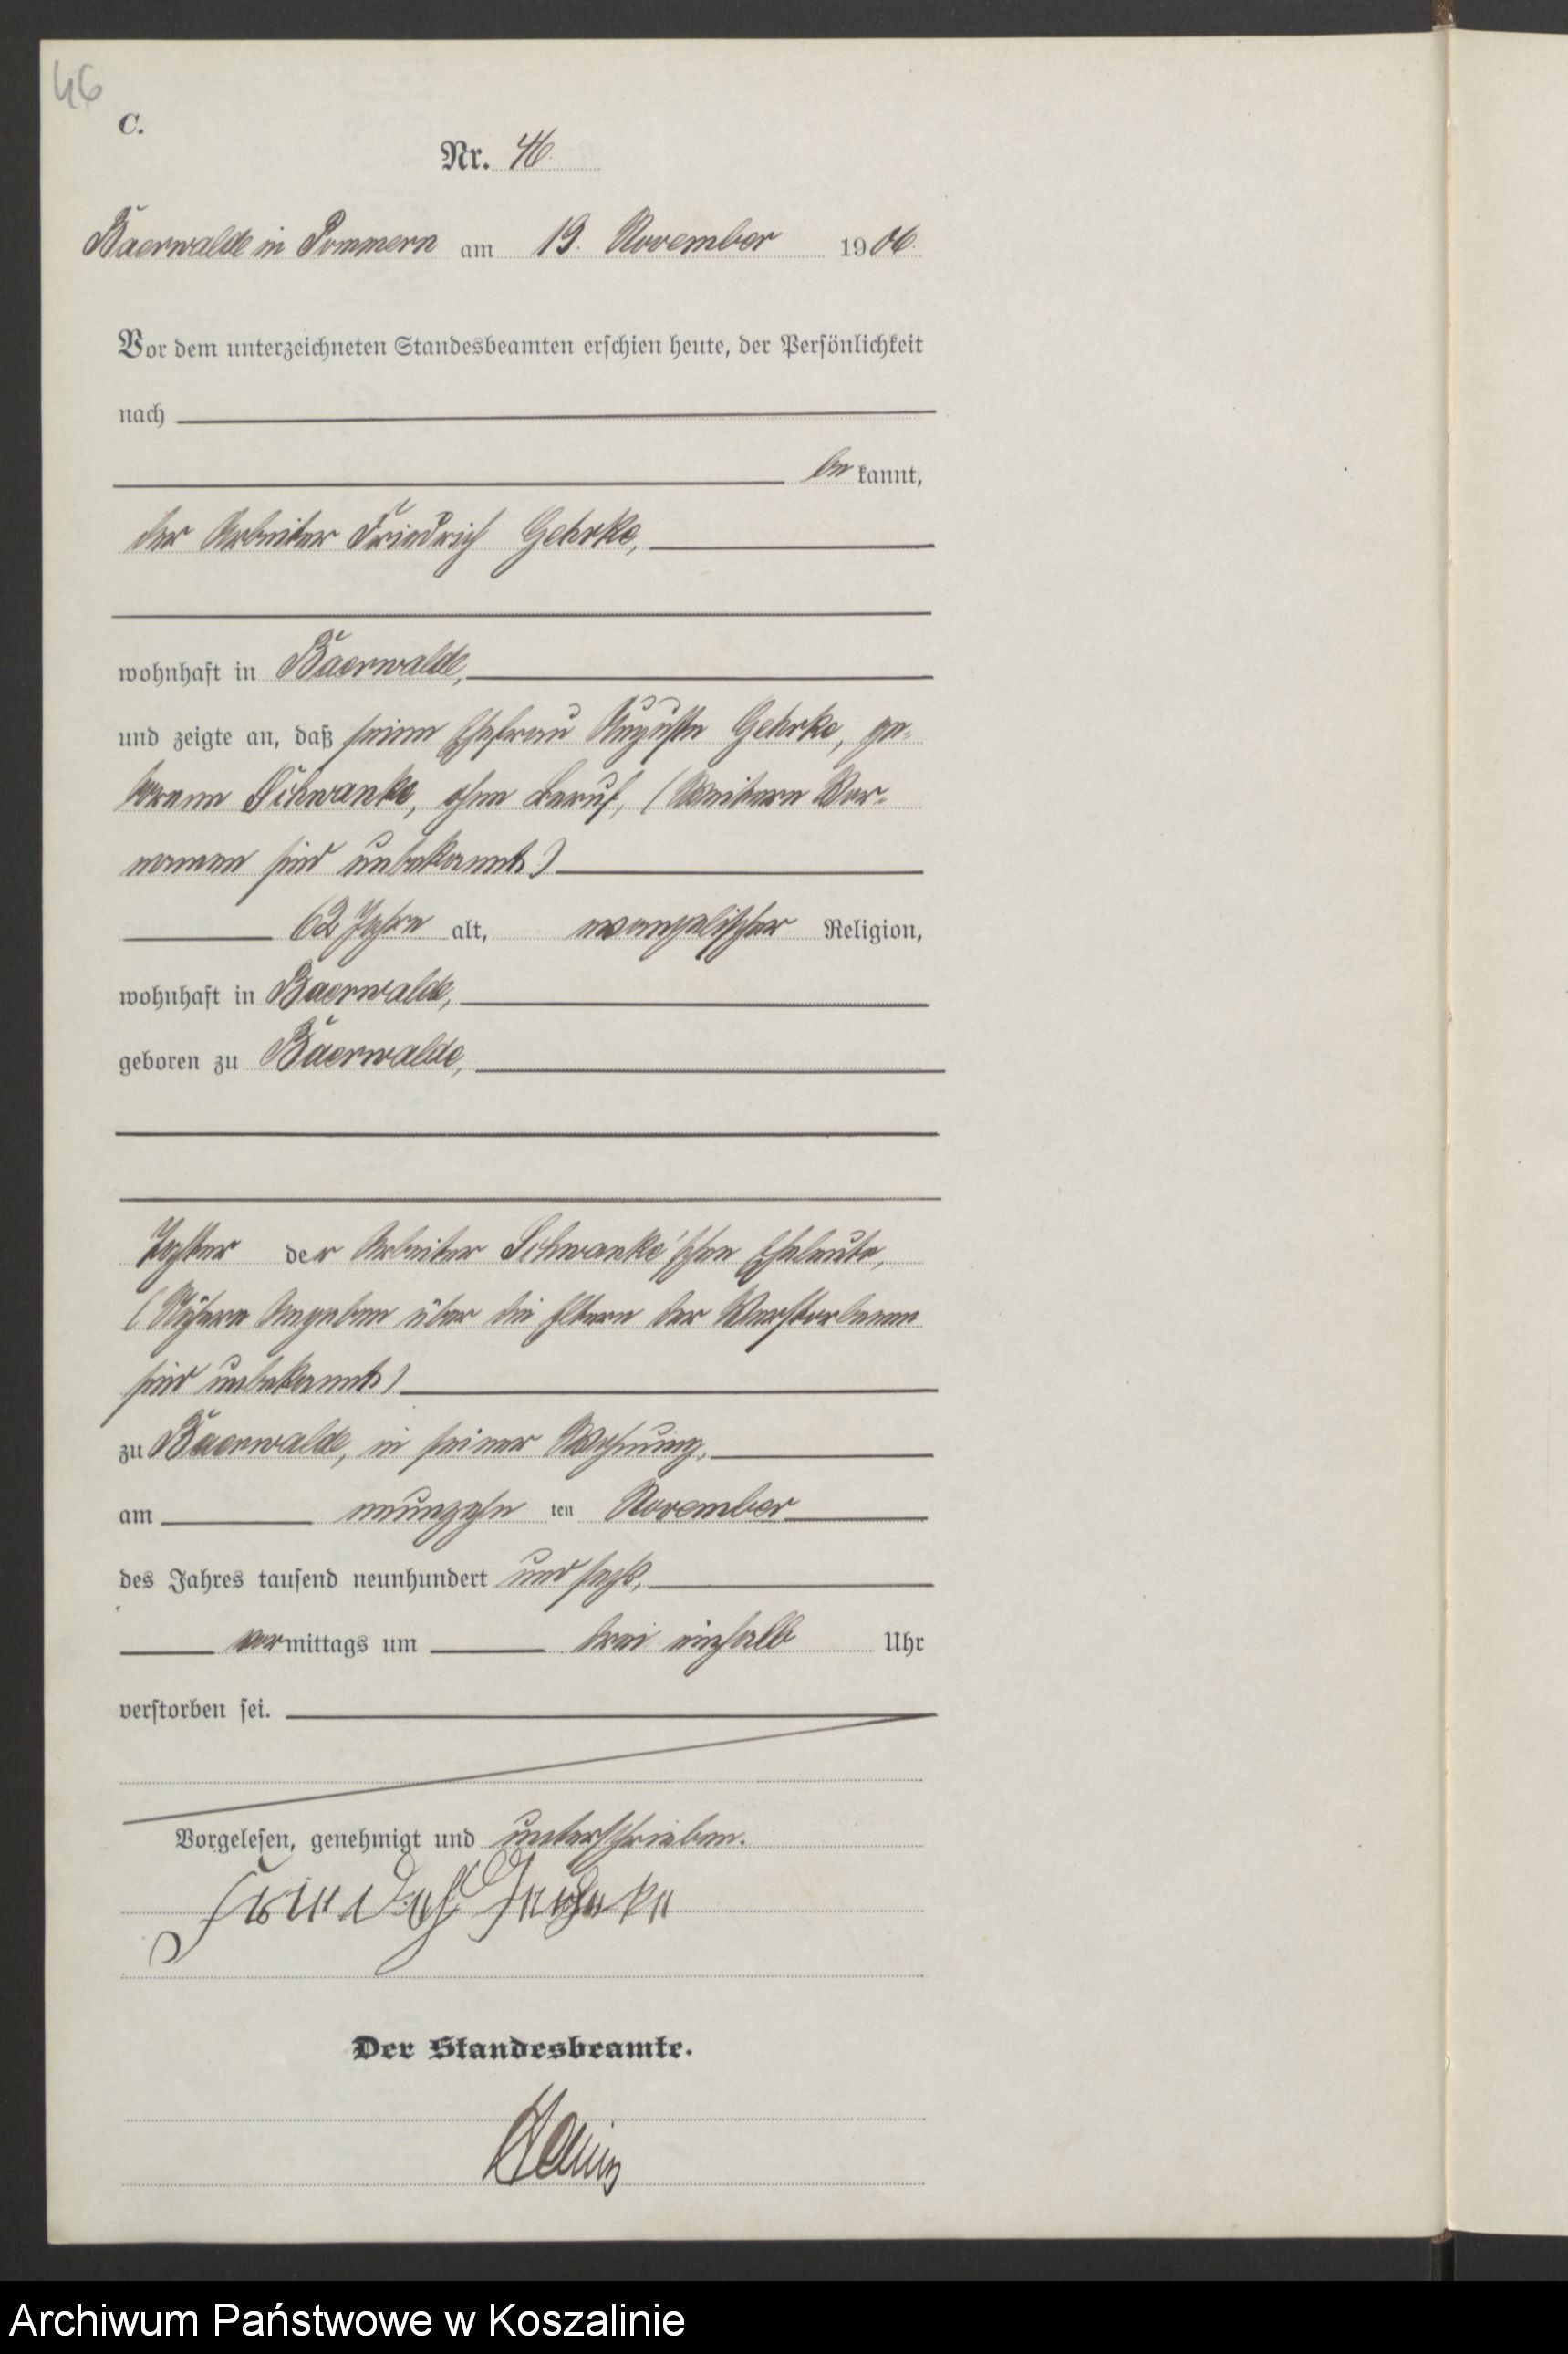 46
C.
Nr. 46.
Baerwalde in Pommern am 19. November 1906.
Vor dem unterzeichneten Standesbeamten erschien heute, der Persönlichkeit
nach
bekannt,
der Arbeiter Friedrich Gehrke,
wohnhaft in Baerwalde,
und zeigte an, daß seine Ehefrau Auguste Gehrke, ge-
borene Schwanke, ohne Beruf, (Weitere Vor-
namen sind unbekannt.)
62 Jahre alt, evangelischer Religion,
wohnhaft in Baerwalde,
geboren zu Baerwalde,
Tochter der Arbeiter Schwanke'schen Eheleute,
(Nähere Angaben über die Eltern der Verstorbenen
sind unbekannt)
zu Baerwalde, in seiner Wohnung,
am neunzehnten November
des Jahres tausend neunhundert und sechs,
vormittags um drei einhalb Uhr
verstorben sei.
Vorgelesen, genehmigt und unterschrieben.
Friedrich
Der Standesbeamte.
Archiwum Państwowe w Koszalinie